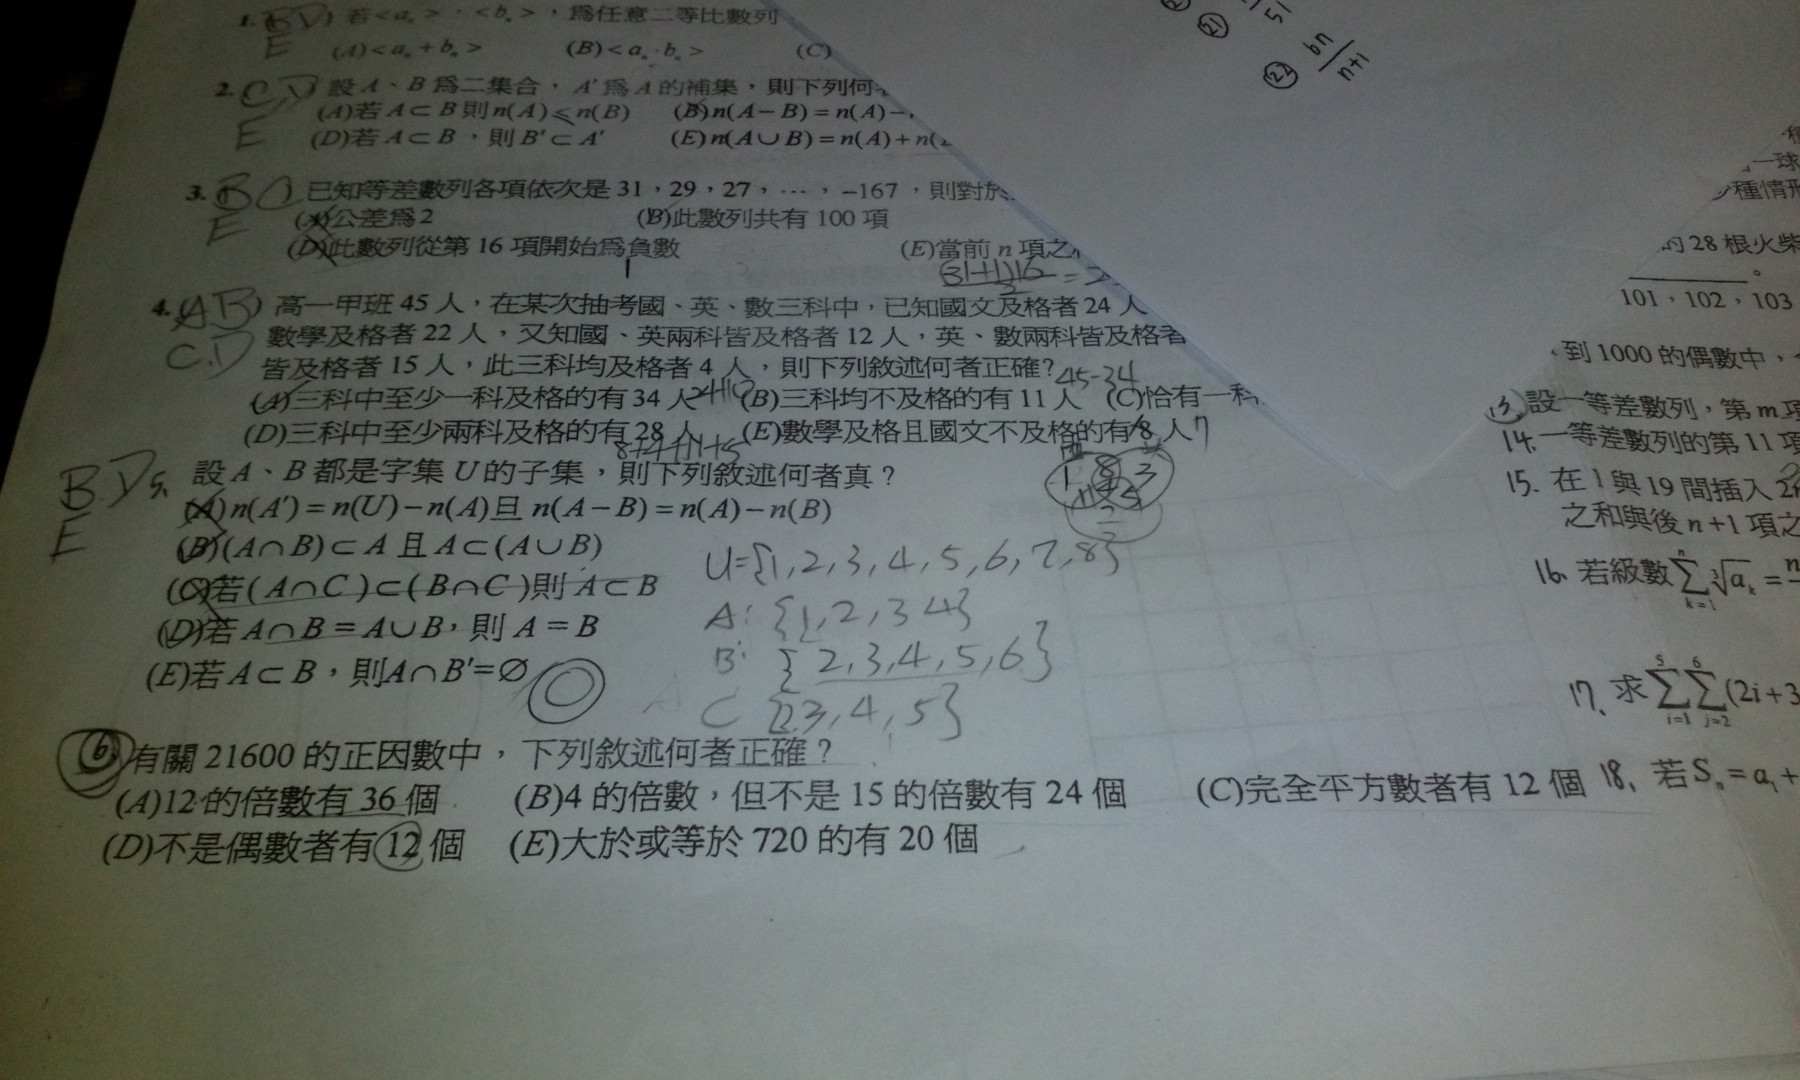 1. BD) 若<aₙ>、<bₙ>，為任意二等比數列
E (A)<aₙ+bₙ> (B)<aₙ·bₙ> (C)
2. C,D 設A、B為二集合，A'為A的補集，則下列何
(A)若A⊂B則n(A)≤n(B) (B)n(A−B)=n(A)−
E (D)若A⊂B，則B'⊂A' (E)n(A∪B)=n(A)+n(
3. BC) 已知等差數列各項依次是31，29，27，…，−167，則對於
E (A)公差為2 (B)此數列共有100項
(D)此數列從第16項開始為負數 (E)當前n項之
(31+1)16/2 =
4. (AB) 高一甲班45人，在某次抽考國、英、數三科中，已知國文及格者24人
C.D 數學及格者22人，又知國、英兩科皆及格者12人，英、數兩科皆及格者
皆及格者15人，此三科均及格者4人，則下列敘述何者正確?
45-34
(A)三科中至少一科及格的有34人 (B)三科均不及格的有11人 (C)恰有一科
(D)三科中至少兩科及格的有28人 (E)數學及格且國文不及格的有8人 7
B.D 5. 設A、B都是字集U的子集，則下列敘述何者真？
E (A)n(A')=n(U)−n(A)且n(A−B)=n(A)−n(B)
(B)(A∩B)⊂A且A⊂(A∪B)
(C)若(A∩C)⊂(B∩C)則A⊂B
(D)若A∩B=A∪B，則A=B
(E)若A⊂B，則A∩B'=∅
U={1,2,3,4,5,6,7,8}
A: {1,2,3 4}
B: {2,3,4,5,6}
C {2 3,4,5}
6 有關21600的正因數中，下列敘述何者正確？
(A)12的倍數有36個 (B)4的倍數，但不是15的倍數有24個 (C)完全平方數者有12個
(D)不是偶數者有12個 (E)大於或等於720的有20個
㉑ 51
㉒ bn/n+1
一球
種情形
的28根火柴
101，102，103
到1000的偶數中，
13. 設一等差數列，第m項
14. 一等差數列的第11項
15. 在1與19間插入2n
之和與後n+1項之
16. 若級數 ∑ₖ₌₁ⁿ ∛aₖ = n
17. 求 ∑ᵢ₌₁⁵ ∑ⱼ₌₂⁶ (2i+3
18. 若Sₙ=a₁+